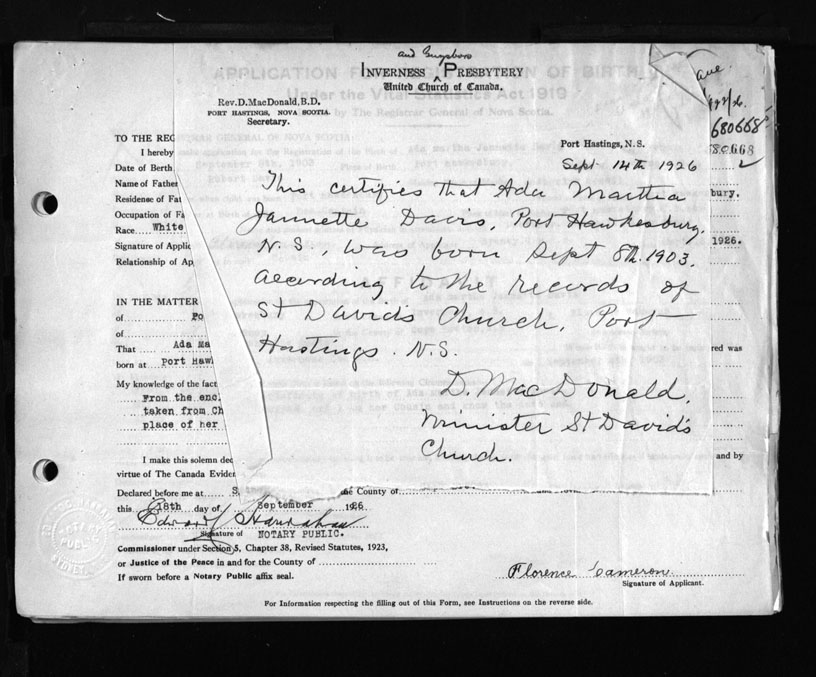 and Guysboro
INVERNESS PRESBYTERY
United Church of Canada.
Rev. D. MacDonald, B.D.
PORT HASTINGS, NOVA SCOTIA.
Secretary.
APPLICATION FOR REGISTRATION OF BIRTH
Under the Vital Statistics Act 1919
by The Registrar General of Nova Scotia.
680668
680668
Port Hastings, N.S.
Sept 14th 1926
This certifies that Ada Martha
Jannette Davis, Port Hawkesbury,
N.S., was born Sept 8th. 1903.
according to the records of
St Davids Church, Port
Hastings. N.S.
D. MacDonald,
Minister St David's
Church.
TO THE REG
I hereby
Date of Birth
Name of Father
bury.
Residense of Fat
Occupation of Fa
Race.... White
Signature of Applic
1926.
Relationship of Ap
IN THE MATTER
of Po
of
That Ada Ma
red was
born at Port Haw
My knowledge of the fact
From the enc
taken from Ch
place of her
I make this solemn dec
and by
virtue of The Canada Eviden
Declared before me at S the County of
this 18th day of September 1926
Signature of NOTARY PUBLIC.
Commissioner under Section 5, Chapter 38, Revised Statutes, 1923,
or Justice of the Peace in and for the County of
If sworn before a Notary Public affix seal.
Florence Cameron
Signature of Applicant.
For Information respecting the filling out of this Form, see Instructions on the reverse side.